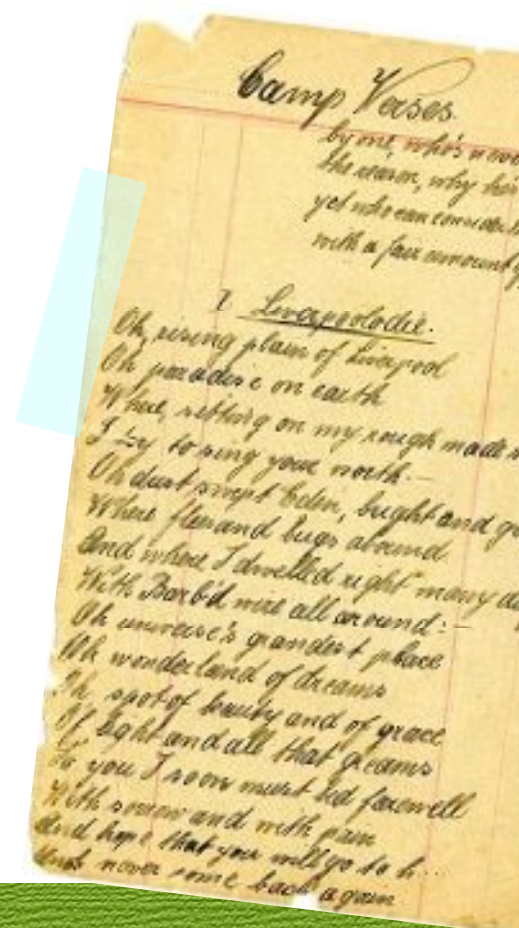 Camp Verses.
by one, who's
the reason, why he's
yet who can consider
with a fair amount
I Liverpoolodie.
Oh, rising plain of Liverpool
Oh paradise on earth
Where, sitting on my rough made
I try to sing your worth. —
Oh dust swept Eden, bright and
Where flies and bugs abound
And where I dwelled right many
With Barb'd wire all around: —
Oh universe's grandest place
Oh wonderland of dreams
Oh spot of beauty and of grace
Of light and all that gleams
To you I soon must bid farewell
With sorrow and with pain
And hope that you will go to h...
And never come back again